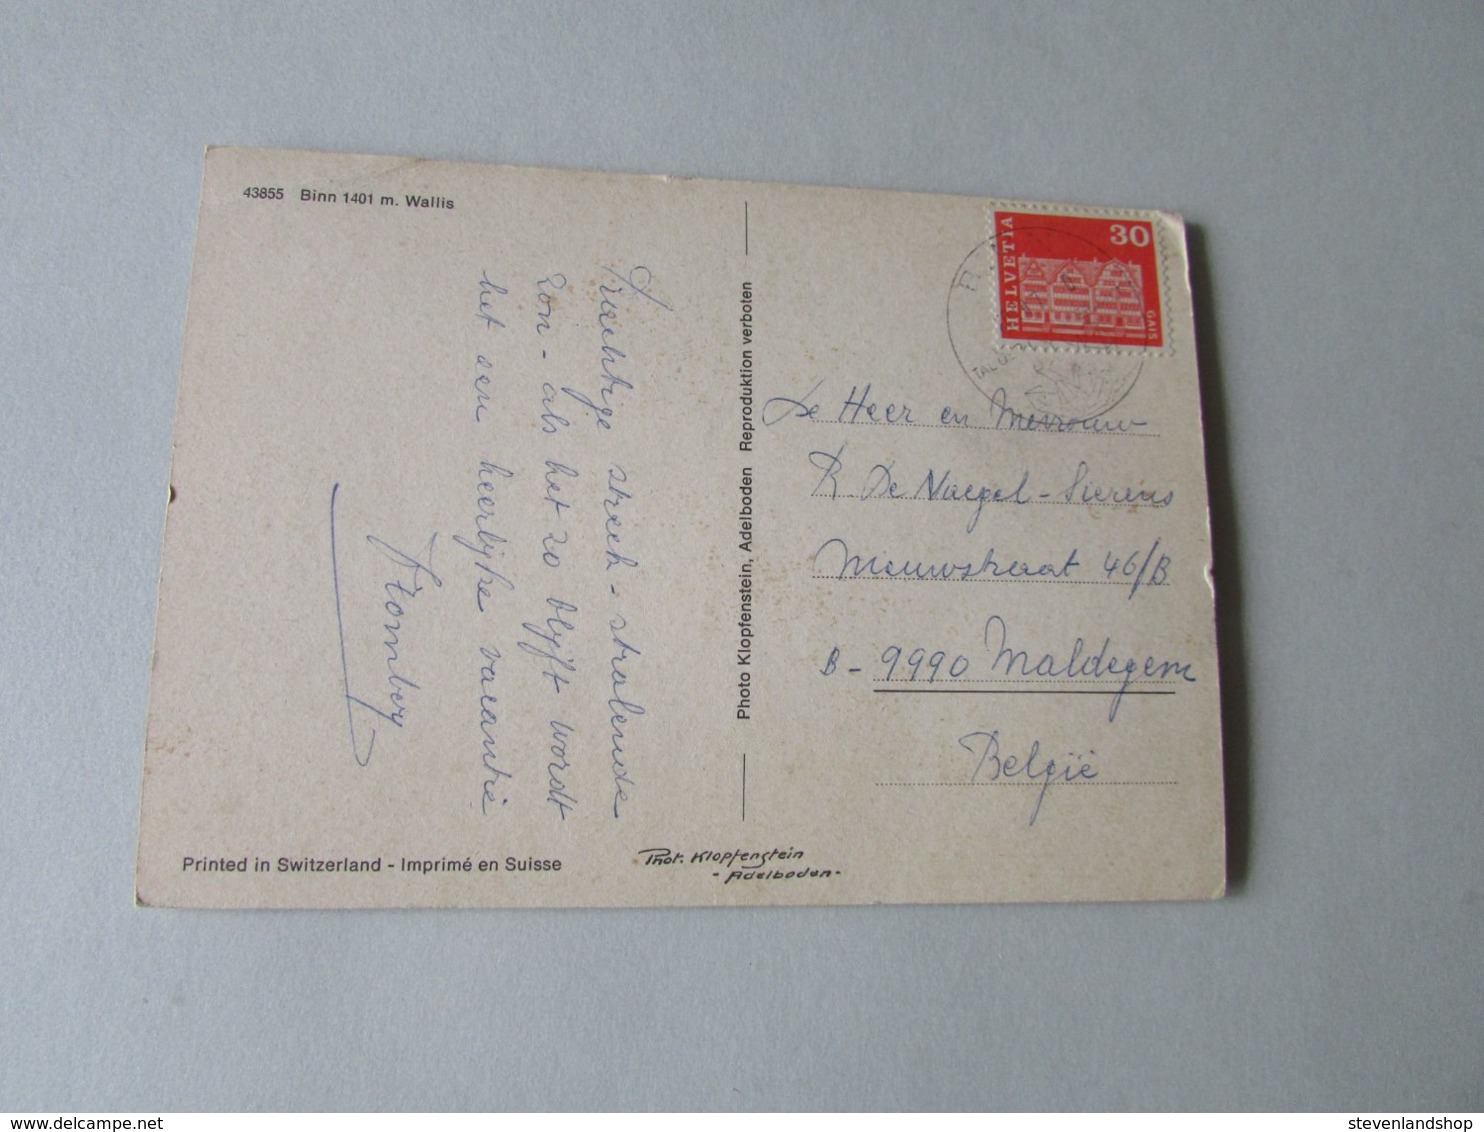 43855 Binn 1401 m. Wallis
Prachtige streek - stralende
zon - als het zo blijft wordt
het een heerlijke vacantie
Photo Klopfenstein, Adelboden Reproduktion verboten
HELVETIA
30
GAIS
De Heer en Mevrouw
R. De Naegel - Sierens
Nieuwstraat 46/B
B - 9990 Maldegem
België
Printed in Switzerland - Imprimé en Suisse
Phot. Klopfenstein
- Adelboden -
stevenlandshop